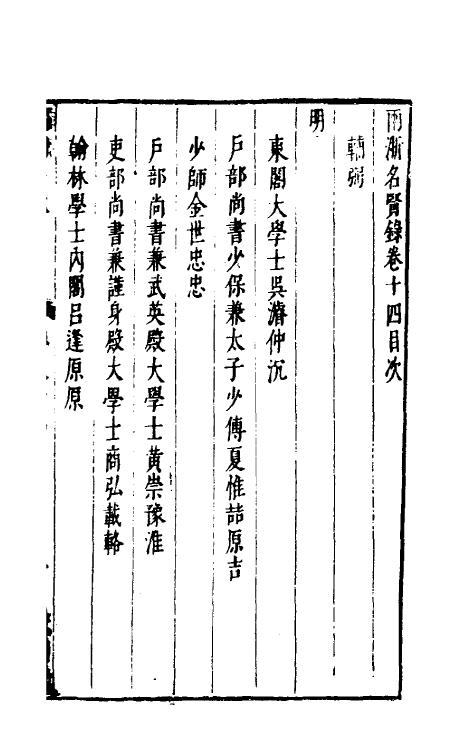 兩浙名賢錄卷十四目次
輔弼
明
東閣大學士吳濬仲沉
戶部尚書少保兼太子少傅夏惟喆原吉
少師金世忠忠
戶部尚書兼武英殿大學士黃崇豫淮
吏部尚書兼謹身殿大學士商弘載輅
翰林學士內閣呂逢原原